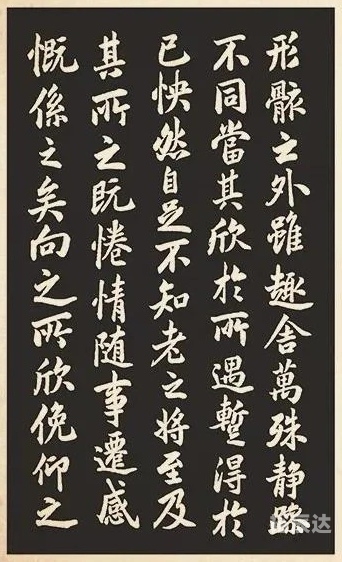 形骸之外雖趣舍萬殊静躁
不同當其欣於所遇暫得於
己怏然自足不知老之將至及
其所之既惓情随事遷感
慨係之矣向之所欣俛仰之